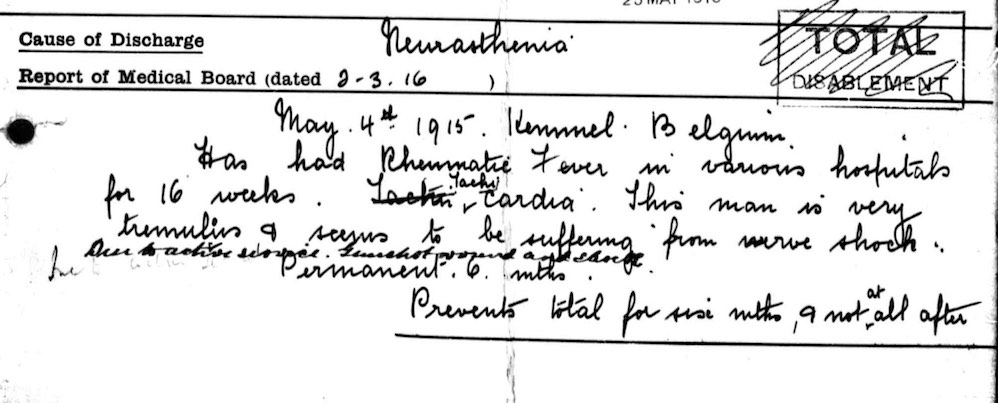 25 MAY 1916
Cause of Discharge Neurasthenia
TOTAL
DISABLEMENT
Report of Medical Board (dated 2-3.16 )
May. 4th. 1915. Kemmel. Belguim.
Has had Rheumatic Fever in various hospitals
for 16 weeks. Tachi Cardia. This man is very
tremulus & seems to be suffering from nerve shock.
Due to active service. Gunshot wound and shock.
Permanent. 6. mths.
Prevents total for sixe mths, & not at all after